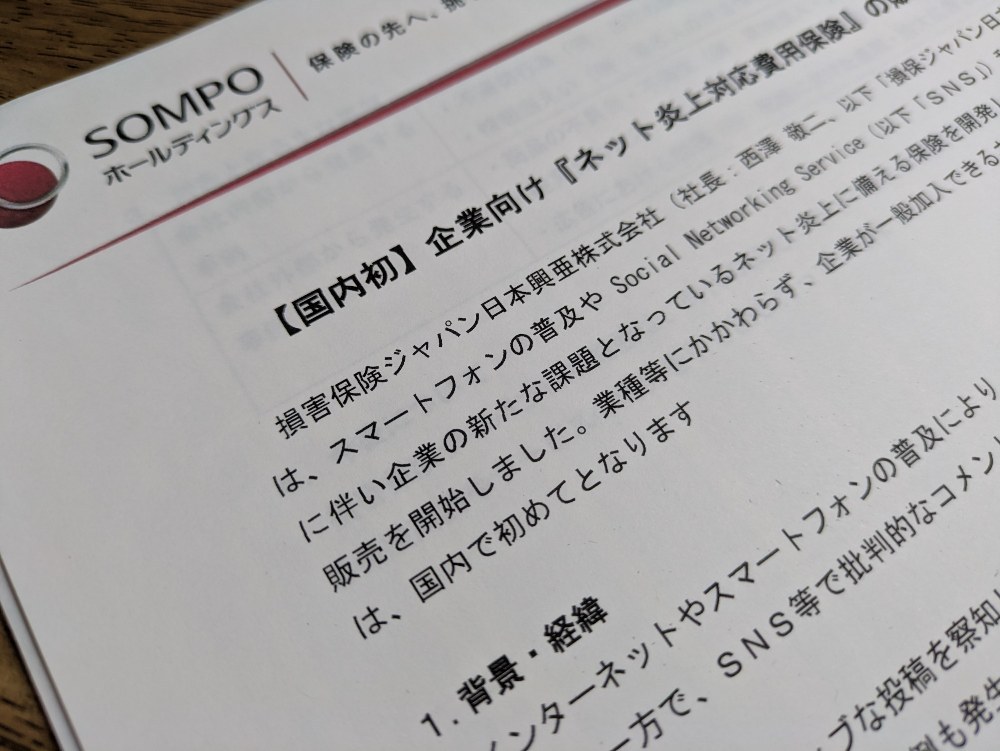 SOMPO
ホールディングス
保険の先へ、
【国内初】企業向け『ネット炎上対応費用保険』の
損害保険ジャパン日本興亜株式会社（社長：西澤 敬二、以下「損保ジャパン日本
は、スマートフォンの普及や Social Networking Service（以下「ＳＮＳ」）
に伴い企業の新たな課題となっているネット炎上に備える保険を開発し
販売を開始しました。業種等にかかわらず、企業が一般加入できる
は、国内で初めてとなります
１．背景・経緯
インターネットやスマートフォンの普及により
一方で、ＳＮＳ等で批判的なコメン
ブな投稿を察知し
も発生